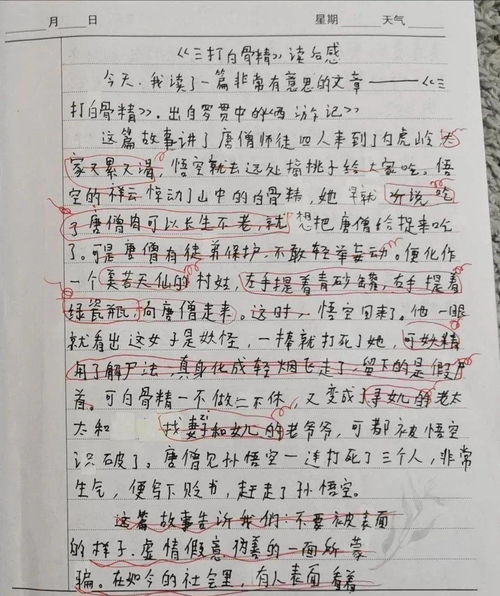 月 日 星期 天气
《三打白骨精》读后感
今天,我读了一篇非常有意思的文章——《三
打白骨精》.出自罗贯中的《西游记》
这篇故事讲了唐僧师徒四人来到了白虎岭,
家又累又渴,悟空就去远处摘桃子给大家吃。悟
空的祥云惊动了山中的白骨精,她早就听说吃
了唐僧肉可以长生不老,就想把唐僧给捉来吃
了。可是唐僧有徒弟保护,不敢轻举妄动。便化作
一个美若天仙的村姑,左手提着青砂罐,右手提着
绿瓷瓶,向唐僧走来。这时,悟空回来了。他一眼
就看出这女子是妖怪,一棒就打死了她,可妖精
用了解尸法,真身化成轻烟飞走了,留下的是假尸
首。可白骨精一不做二不休,又变成了寻女儿的老太
太和 找妻子zi和女儿的老爷爷,可都被悟空
识破了。唐僧见孙悟空一连打死了三个人,非常
生气,便写下贬书,赶走了孙悟空。
这篇故事告诉我们:不要被表面
的样子.虚情假意伪善的一面所蒙
骗。在如今的社会里,有人表面看着